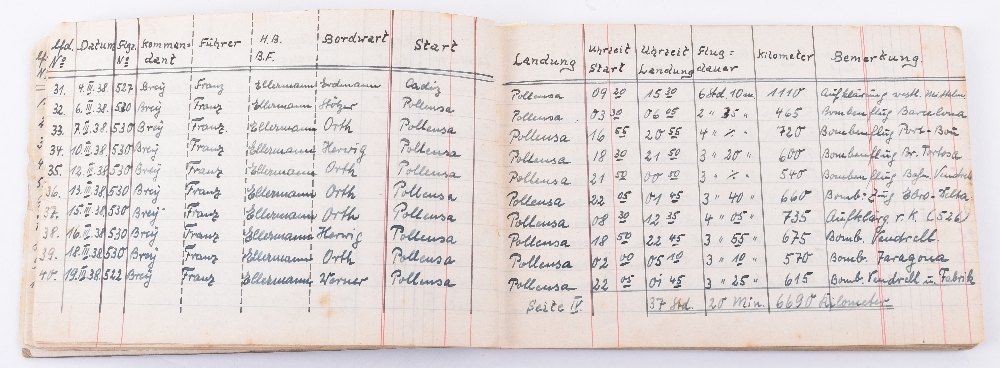 Lfd. Nº Datum Flgz. Nº Komman-dant Führer H.B. B.F. Bordwart Start Landung Uhrzeit Start Uhrzeit Landung Flug=dauer Kilometer Bemerkung.
31. 4.III.38. 527 Breÿ Franz Ellermann Erdmann Cadiz Pollensa 09 20 15 30 6 Std. 10 m. 1110 Aufklärung westl. Mittelm.
32. 6.III.38. 530 Breÿ Franz Ellermann Hölzer Pollensa Pollensa 03 30 06 05 2 " 35 " 465 Bombenflug Barcelona
33. 7.III.38. 530 Breÿ Franz. Ellermann Orth Pollensa Pollensa 16 55 20 55 4 " % " 720 Bombenflug Port-Bou
34. 10.III.38. 530 Breÿ Franz Ellermann Herwig Pollensa Pollensa 18 30 21 50 3 " 20 " 600 Bombenflug Br. Tortosa
35. 12.III.38. 530 Breÿ Franz Ellermann Orth Pollensa Pollensa 21 50 00 50 3 " % " 540 Bombenflug Bahn Vendrell
36. 13.III.38. 530 Breÿ Franz Ellermann Orth Pollensa Pollensa 22 05 01 45 3 " 40 " 660 Bomb. Zug Ebro-
37. 15.III.38. 530 Breÿ Franz Ellermann Orth Pollensa Pollensa 08 30 12 35 4 " 05 " 735 Aufklärg. r. K. (526)
38. 16.III.38. 530 Breÿ Franz Ellermann Herwig Pollensa Pollensa 18 50 22 45 3 " 55 " 675 Bomb. Vendrell.
39. 18.III.38. 530 Breÿ Franz Ellermann Orth Pollensa Pollensa 02 00 05 10 3 " 10 " 570 Bomb. Zaragona
40. 19.III.38. 522 Breÿ Franz Ellermann Werner Pollensa Pollensa 22 05 01 45 3 " 25 " 615 Bomb. Vendrell u. Fabrik
Seite IV. 37 Std. 20 Min. 6690 Kilometer